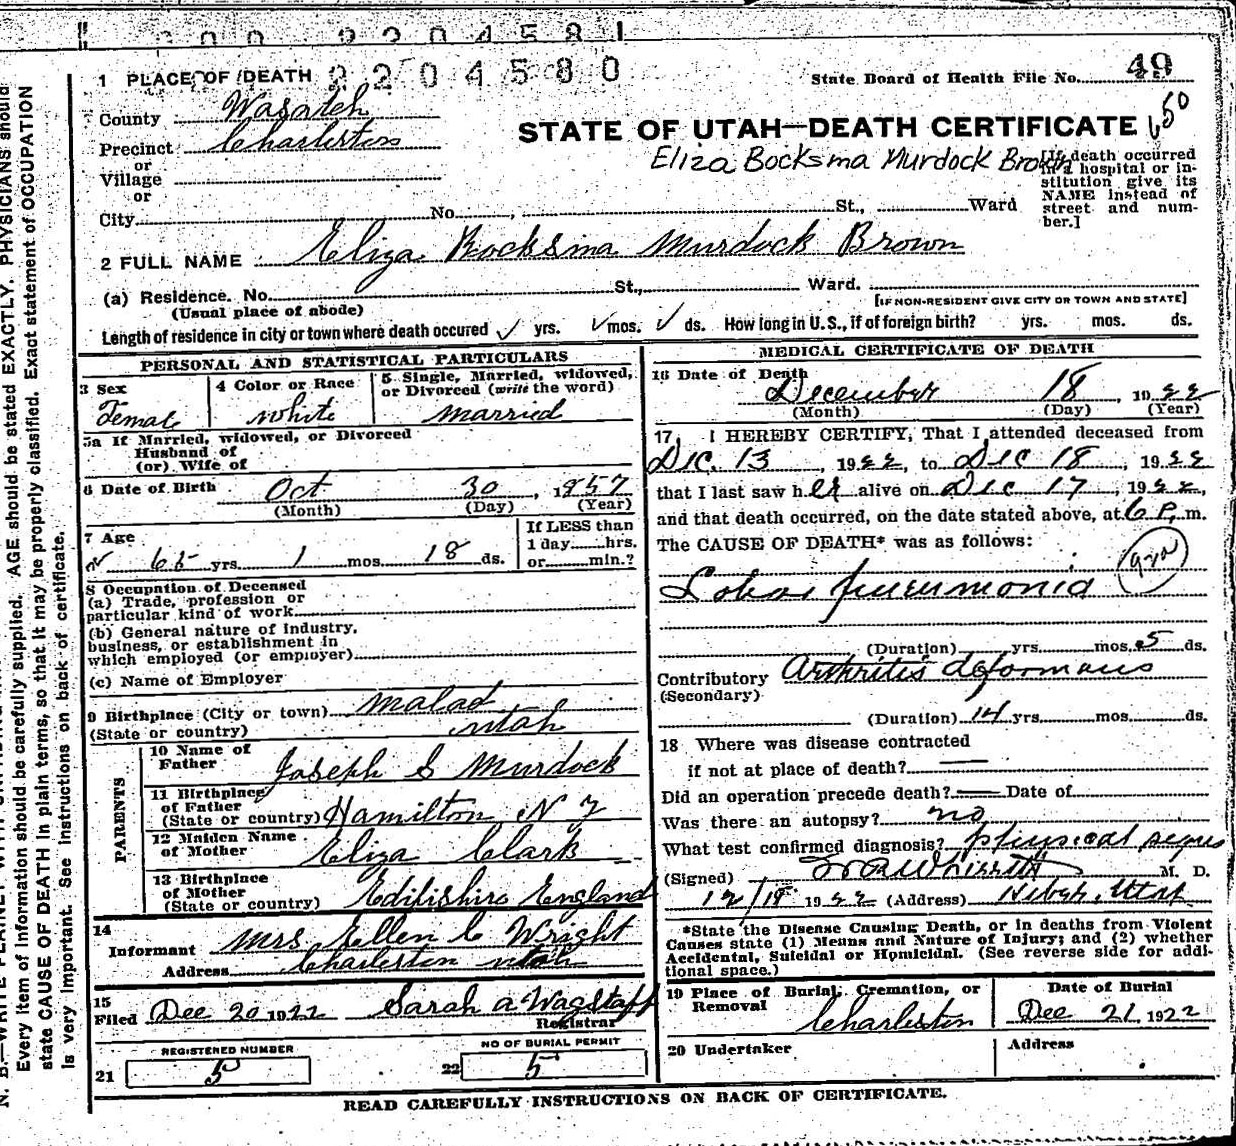 2204581
1 PLACE OF DEATH 2204580
State Board of Health File No. 49
County Wasatch
650
Precinct Charleston
STATE OF UTAH—DEATH CERTIFICATE
or
Village
or
Eliza Bocksma Murdock Brown
[If death occurred in a hospital or institution give its NAME instead of street and number.]
City No. , St., Ward
2 FULL NAME Eliza Bocksma Murdock Brown
(a) Residence. No. St., Ward.
(Usual place of abode)
[IF NON-RESIDENT GIVE CITY OR TOWN AND STATE]
Length of residence in city or town where death occured ✓ yrs. ✓ mos. ✓ ds. How long in U.S., if of foreign birth? yrs. mos. ds.
PERSONAL AND STATISTICAL PARTICULARS
3 Sex
Female
4 Color or Race
White
5 Single, Married, widowed,
or Divorced (write the word)
married
5a If Married, widowed, or Divorced
Husband of
(or) Wife of
6 Date of Birth Oct 30, 1857
(Month) (Day) (Year)
7 Age
65 yrs. 1 mos. 18 ds.
If LESS than
1 day hrs.
or min.?
8 Occupation of Deceased
(a) Trade, profession or
particular kind of work
(b) General nature of industry,
business, or establishment in
which employed (or employer)
(c) Name of Employer
9 Birthplace (City or town) Malad
(State or country) Utah
PARENTS
10 Name of
Father Joseph S Murdock
11 Birthplace
of Father
(State or country) Hamilton N Y
12 Maiden Name
of Mother Eliza Clark
13 Birthplace
of Mother
(State or country) England
14
Informant Mrs Ellen C Wright
Address Charleston Utah
15
Filed Dec 20 1922 Sarah A Wagstaff
Registrar
REGISTERED NUMBER
21 5
NO OF BURIAL PERMIT
22 5
MEDICAL CERTIFICATE OF DEATH
16 Date of Death
December 18, 1922
(Month) (Day) (Year)
17, I HEREBY CERTIFY, That I attended deceased from
Dec. 13, 1922, to Dec 18, 1922
that I last saw her alive on Dec 17, 1922,
and that death occurred, on the date stated above, at 6 P. m.
The CAUSE OF DEATH* was as follows:
Lobar pneumonia
(Duration) yrs. mos. 5 ds.
Contributory Arthritis deformans
(Secondary)
(Duration) 14 yrs. mos. ds.
18 Where was disease contracted
if not at place of death? —
Did an operation precede death? — Date of
Was there an autopsy? no
What test confirmed diagnosis? physical signs
(Signed) M. D.
12/18 1922 (Address) Heber, Utah
*State the Disease Causing Death, or in deaths from Violent
Causes state (1) Means and Nature of Injury; and (2) whether
Accidental, Suicidal or Homicidal. (See reverse side for addi-
tional space.)
19 Place of Burial, Cremation, or
Removal
Charleston
Date of Burial
Dec 21, 1922
20 Undertaker
Address
READ CAREFULLY INSTRUCTIONS ON BACK OF CERTIFICATE.
Every item of information should be carefully supplied. AGE should be stated EXACTLY. PHYSICIANS should
state CAUSE OF DEATH in plain terms, so that it may be properly classified. Exact statement of OCCUPATION
is very important. See Instructions on back of certificate.